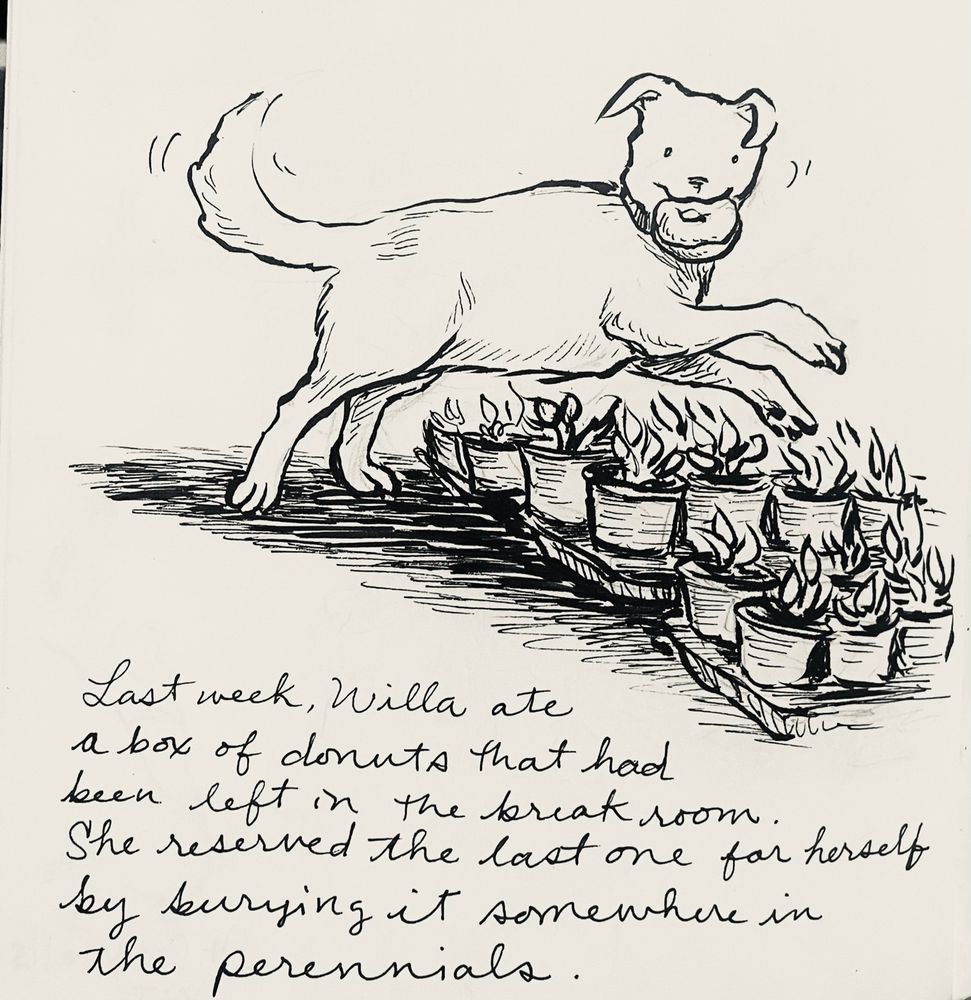 Last week, Willa ate
a box of donuts that had
been left in the break room.
She reserved the last one for herself
by burying it somewhere in
the perennials.